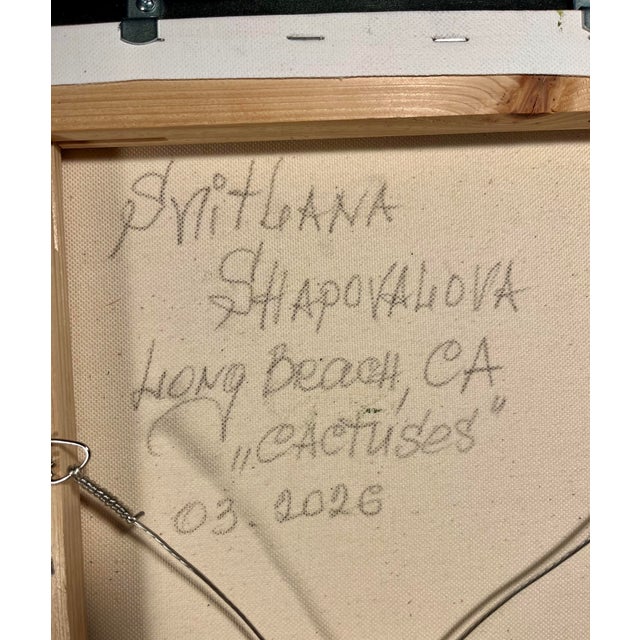 Svitlana
Shapovalova
Long Beach, CA
„Cactuses”
03.2026